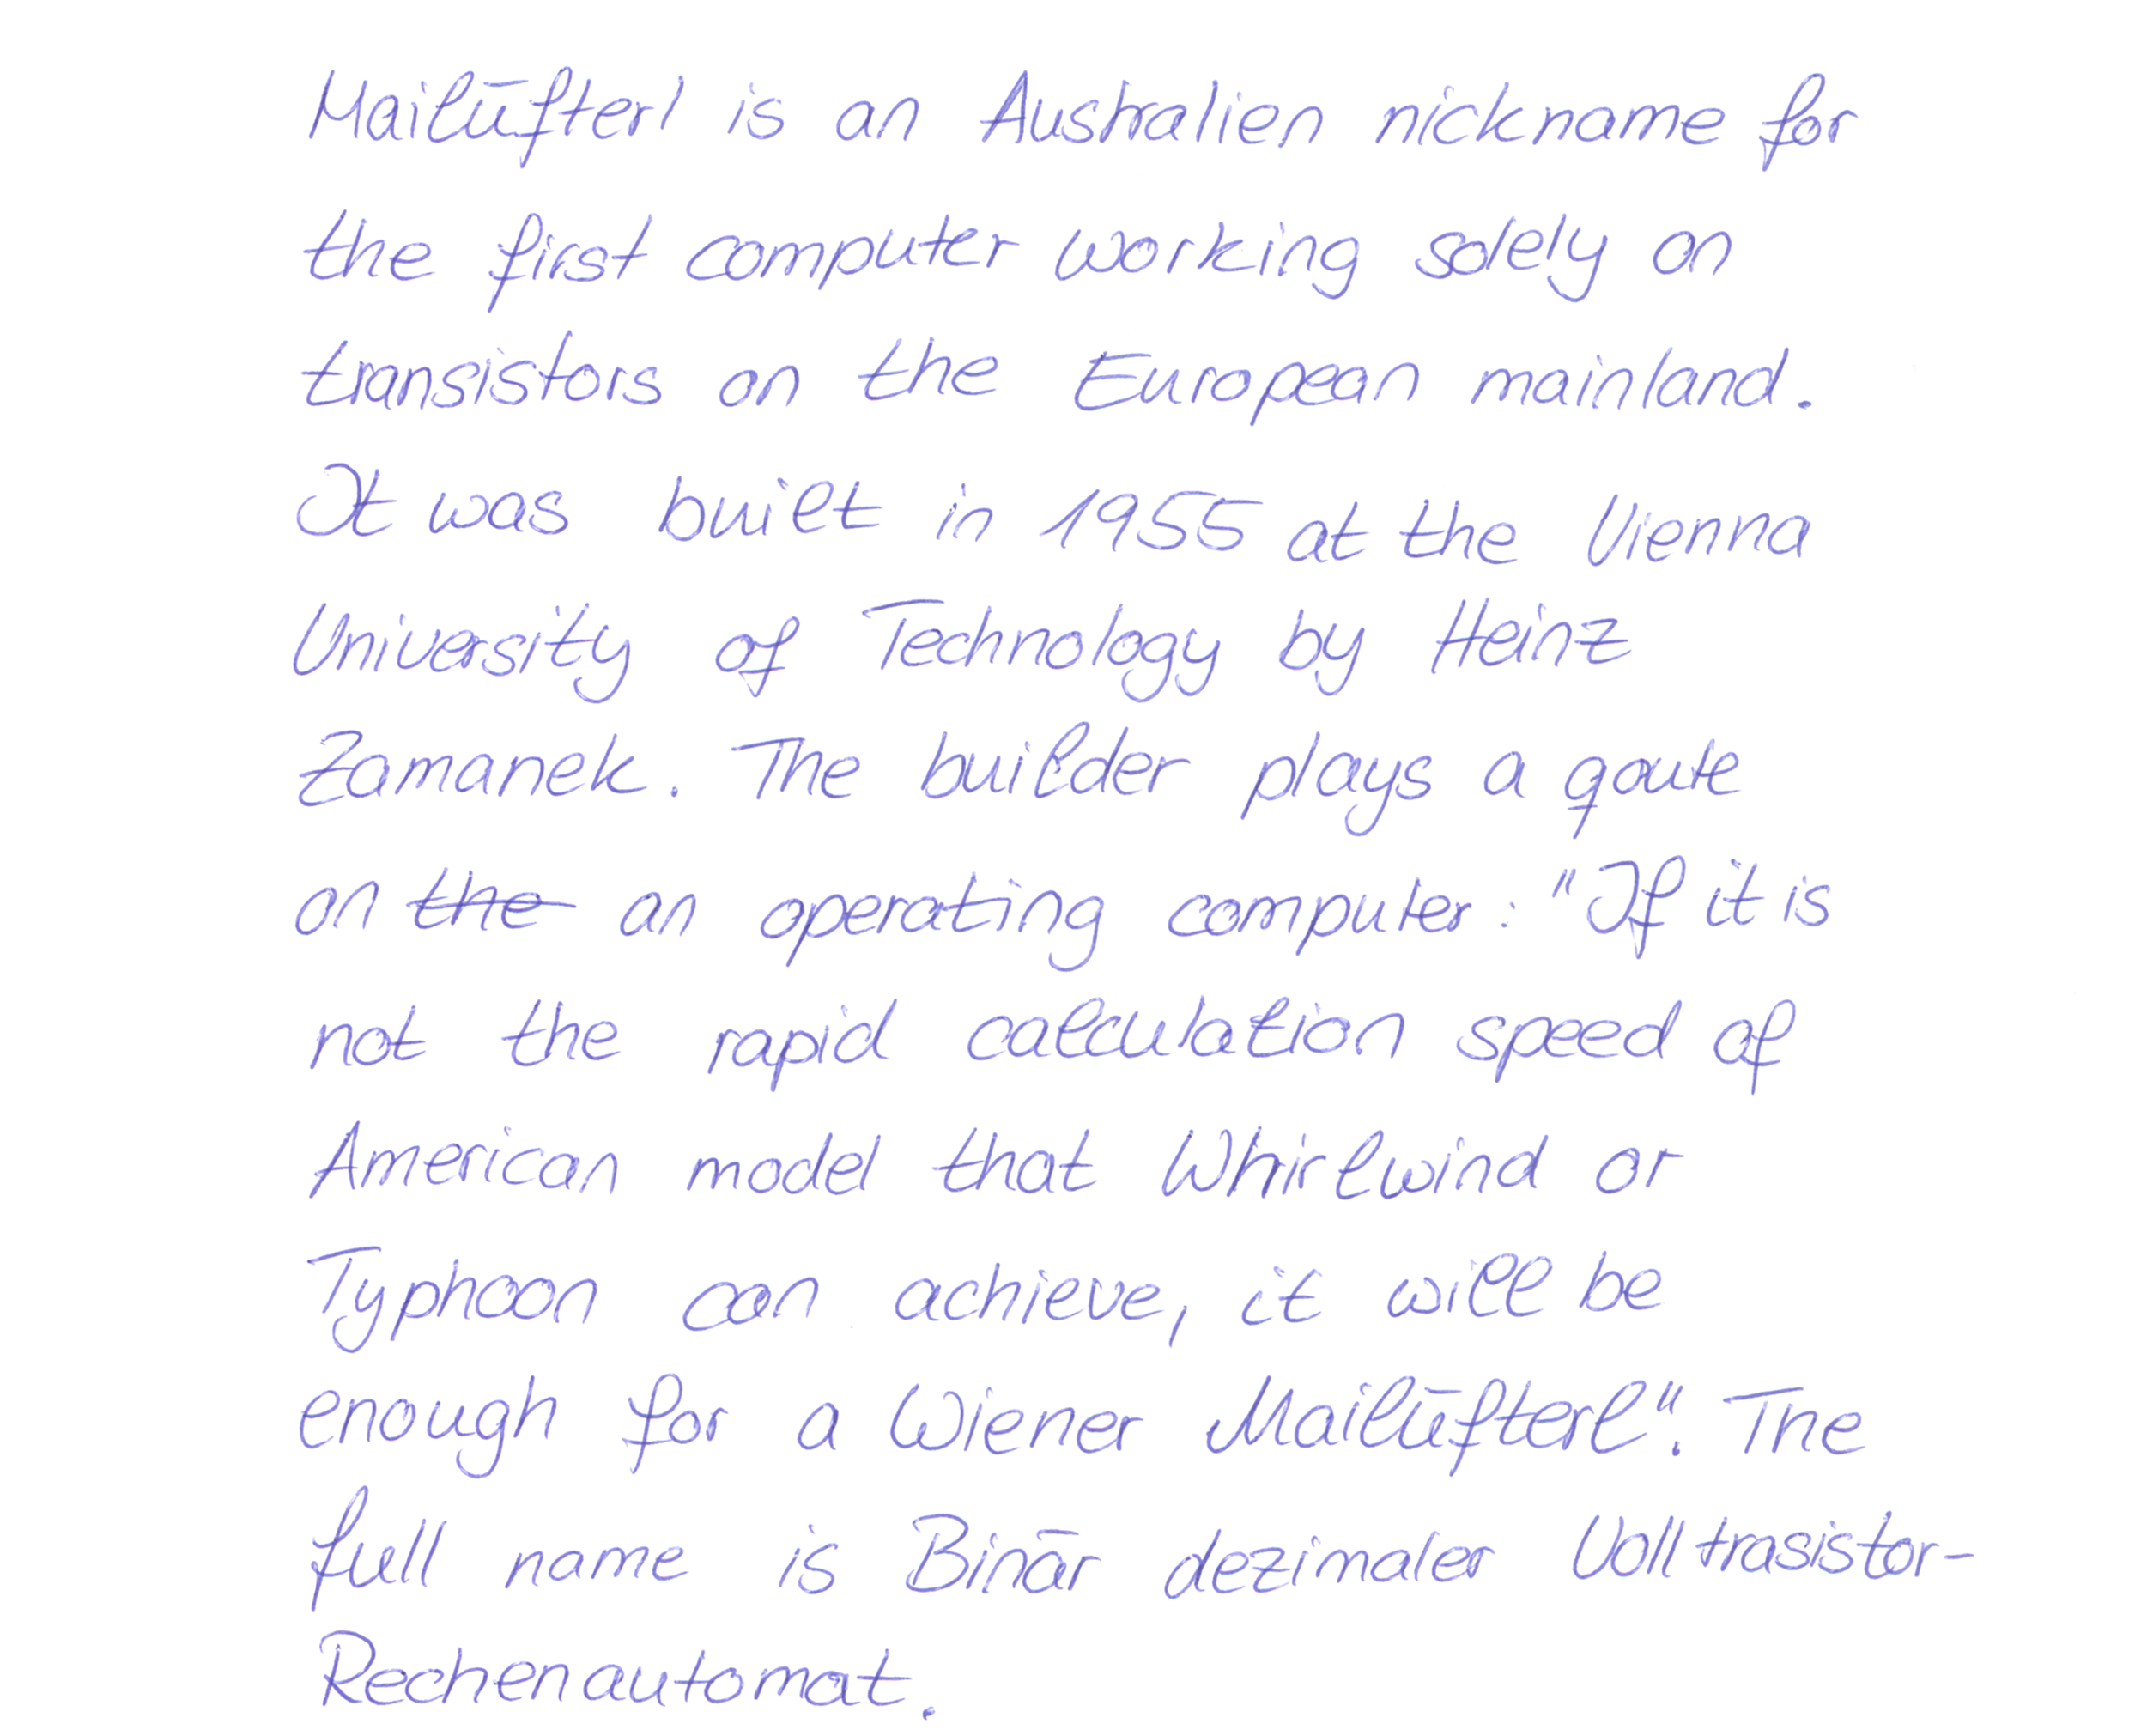 Mailüfterl is an Australien nickname for
the first computer working solely on
transistors on the European mainland.
It was built in 1955 at the Vienna
University of Technology by Heinz
Zamanek. The builder plays a qoute
on the an operating computer: "If it is
not the rapid calculation speed of
American model that Whirlwind or
Typhoon can achieve, it will be
enough for a Wiener Mailüfterl". The
full name is Binär dezimaler Volltrasistor-
Rechenautomat.